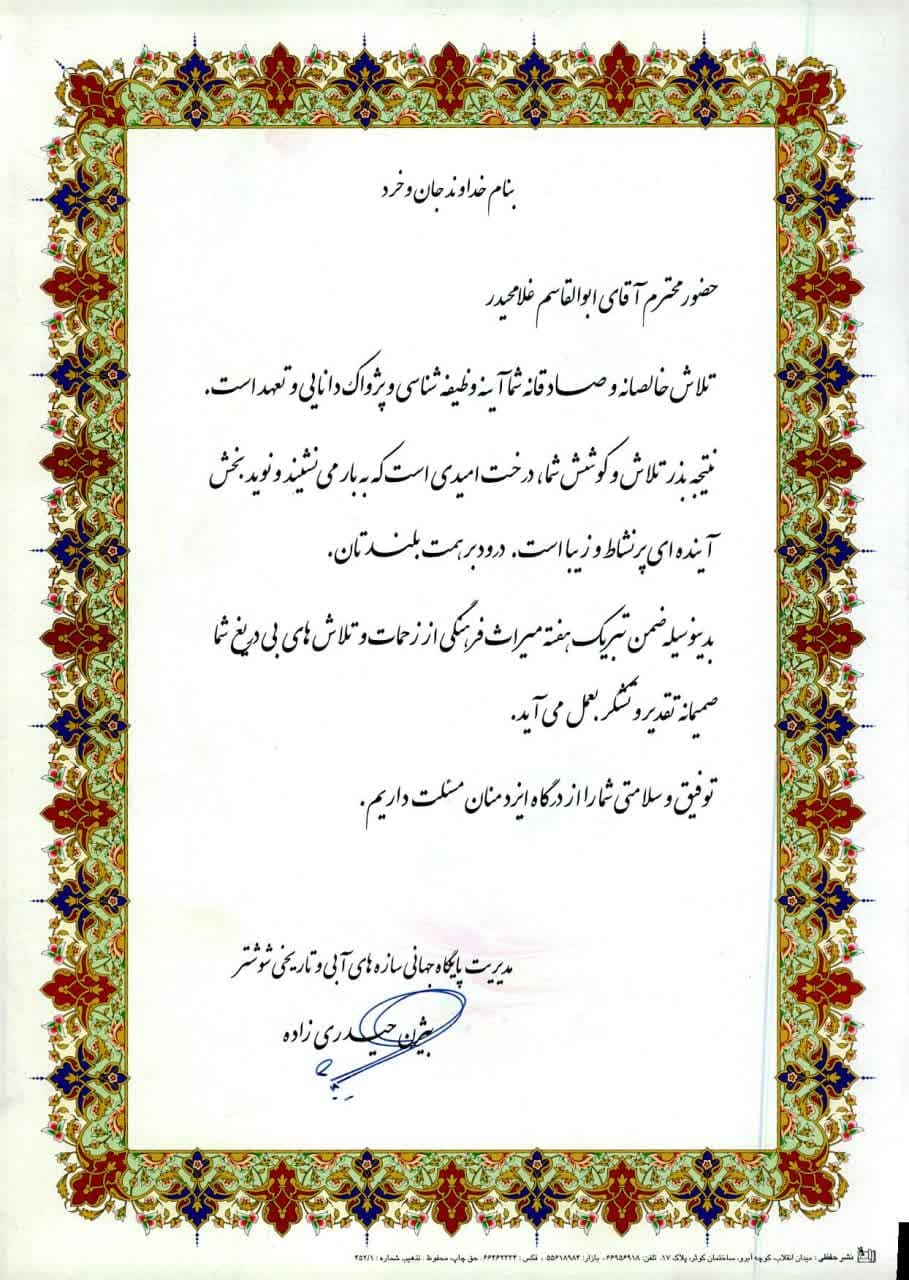 بنام خداوند جان و خرد
حضور محترم آقای ابوالقاسم غلامحیدر
تلاش خالصانه و صادقانه شما آینه وظیفه شناسی و پژواک دانایی و تعهد است.
نتیجه بذر تلاش و کوشش شما، درخت امیدی است که به بار می نشیند و نوید بخش
آینده ای پر نشاط و زیبا است. درود بر همت بلندتان.
بدینوسیله ضمن تبریک هفته میراث فرهنگی از زحمات و تلاش های بی دریغ شما
صمیمانه تقدیر و تشکر بعمل می آید.
توفیق و سلامتی شما را از درگاه ایزد منان مسئلت داریم.
مدیریت پایگاه جهانی سازه های آبی و تاریخی شوشتر
بیژن حیدری زاده
نشر حفظی : میدان انقلاب، کوچه آبرو، ساختمان کوثر، پلاک ۱۷، تلفن: ۶۶۹۵۶۹۱۸ - بازار: ۵۵۶۱۸۹۸۲ ، فکس : ۶۶۴۶۲۲۲۴ حق چاپ محفوظ . تذهیب شماره : ۴۵۲/۱